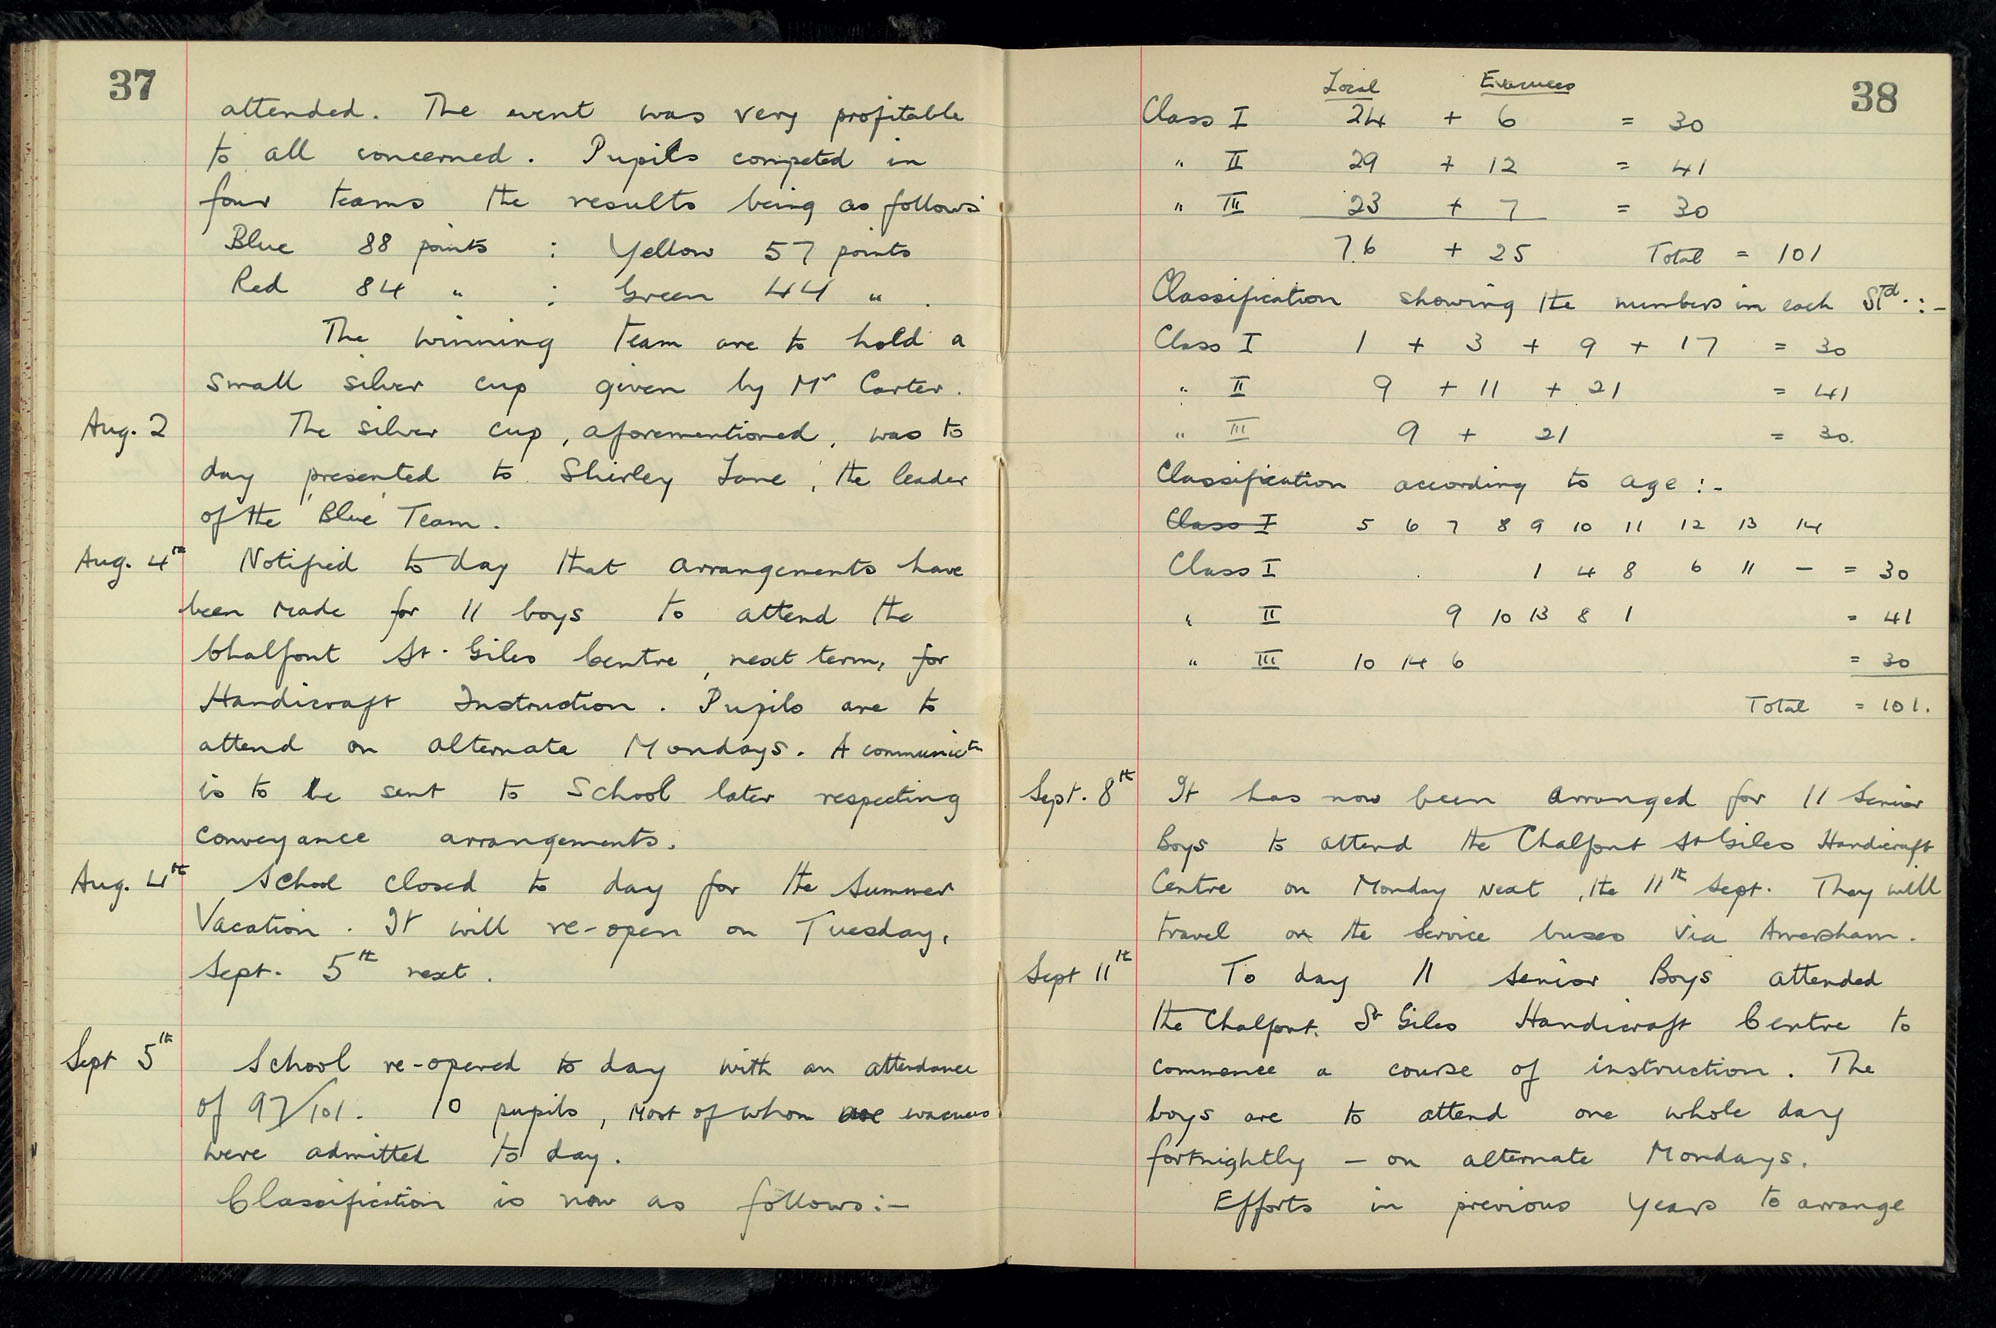 37
attended. The event was very profitable
to all concerned. Pupils competed in
four teams the results being as follows
Blue 88 points : Yellow 57 points
Red 84 " : Green 44 " .
The winning team are to hold a
small silver cup given by Mr Carter.
Aug. 2 The silver cup, aforementioned, was to
day presented to Shirley Lane, the leader
of the Blue Team.
Aug. 4th Notified to day that arrangements have
been made for 11 boys to attend the
Chalfont St. Giles Centre, next term, for
Handicraft Instruction. Pupils are to
attend on alternate Mondays. A communictn
is to be sent to School later respecting
conveyance arrangements.
Aug. 4th School closed to day for the Summer
Vacation. It will re-open on Tuesday,
Sept. 5th next.
Sept 5th School re-opened to day with an attendance
of 97/101. 10 pupils, most of whom are evacuees
were admitted to day.
Classification is now as follows:-
38
Local Evacuees
Class I 24 + 6 = 30
" II 29 + 12 = 41
" III 23 + 7 = 30
76 + 25 Total = 101
Classification showing the numbers in each Std. :-
Class I 1 + 3 + 9 + 17 = 30
" II 9 + 11 + 21 = 41
" III 9 + 21 = 30.
Classification according to age :-
Class I 5 6 7 8 9 10 11 12 13 14
Class I 1 4 8 6 11 - = 30
" II 9 10 13 8 1 = 41
" III 10 14 6 = 30
Total = 101.
Sept. 8th It has now been arranged for 11 Senior
Boys to attend the Chalfont St Giles Handicraft
Centre on Monday next, the 11th Sept. They will
travel on the service buses via Amersham.
Sept 11th To day 11 Senior Boys attended
the Chalfont St Giles Handicraft Centre to
commence a course of instruction. The
boys are to attend one whole day
fortnightly - on alternate Mondays.
Efforts in previous years to arrange